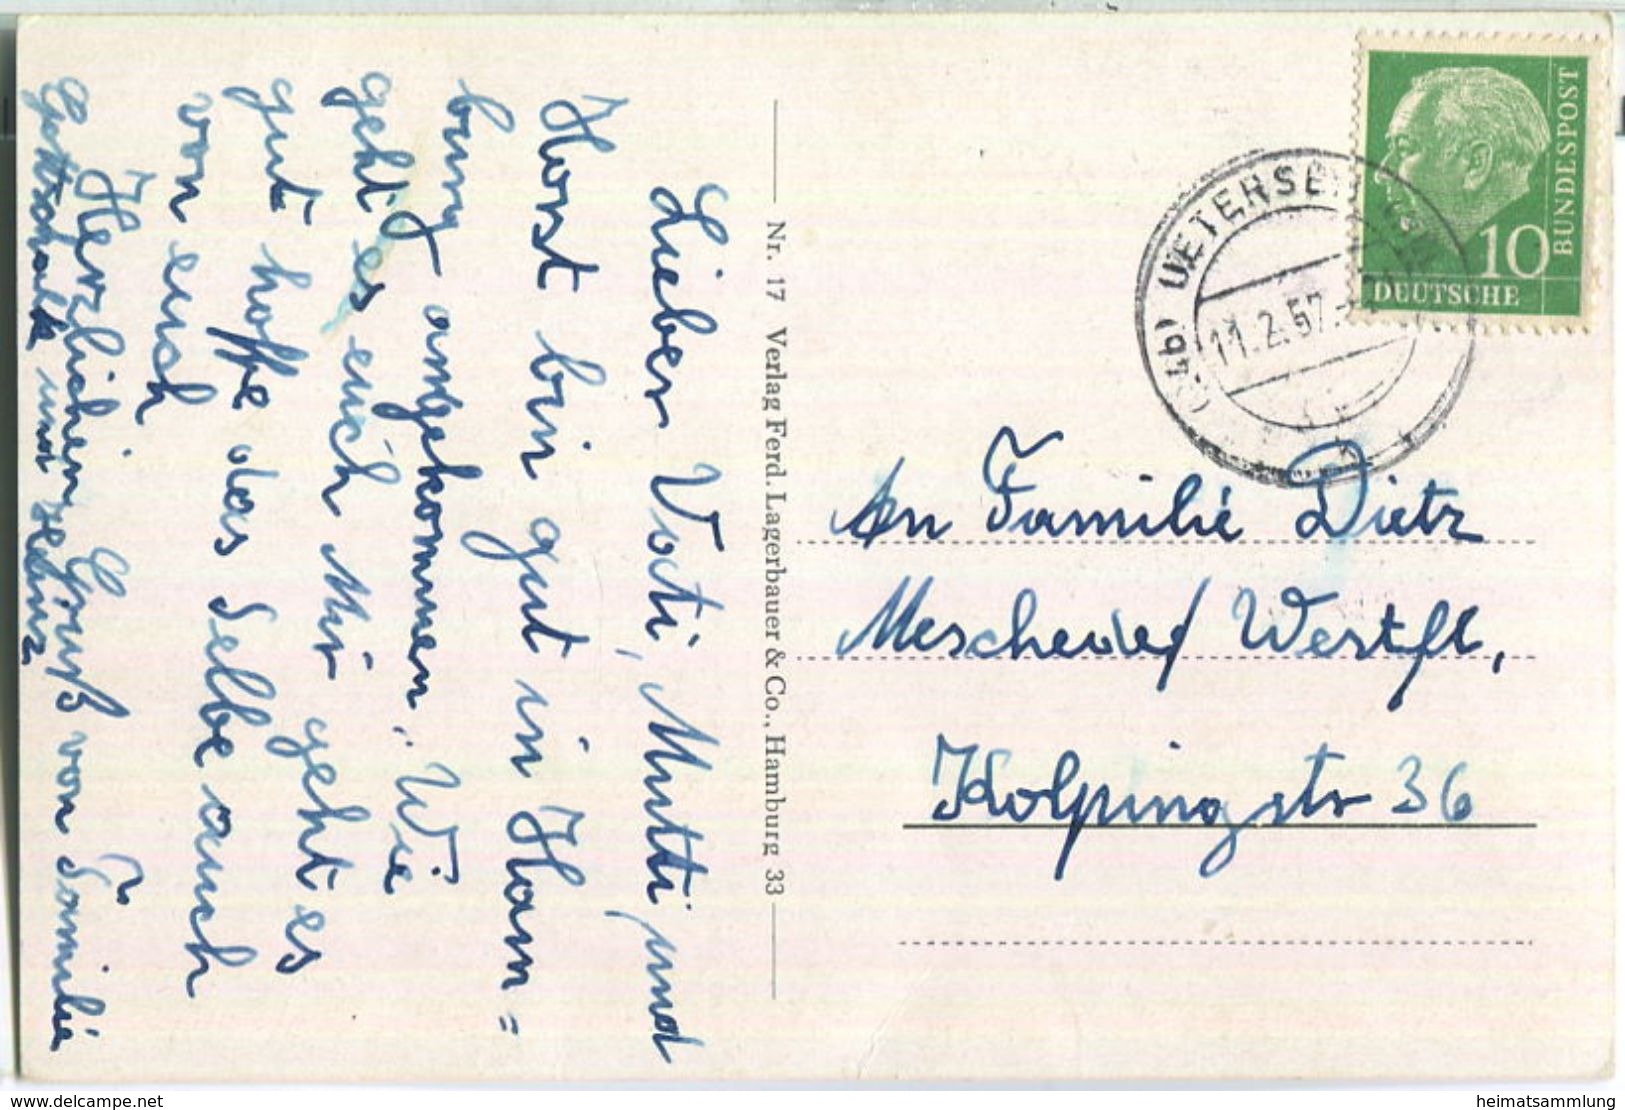 Lieber Vati, Mutti, und
Horst bin gut in Ham=
burg angekommen. Wie
geht es euch Mir geht es
gut hoffe das Selbe auch
von euch
Herzlichen Gruß von Familie
Gottschalk und Heinz
Nr. 17 Verlag Ferd. Lagerbauer & Co., Hamburg 33
DEUTSCHE
BUNDESPOST
10
UETERSEN
11.2.57
An Familie Dietz
Meschede/ Westfl,
Kolpingstr 36
www.delcampe.net
heimatsammlung